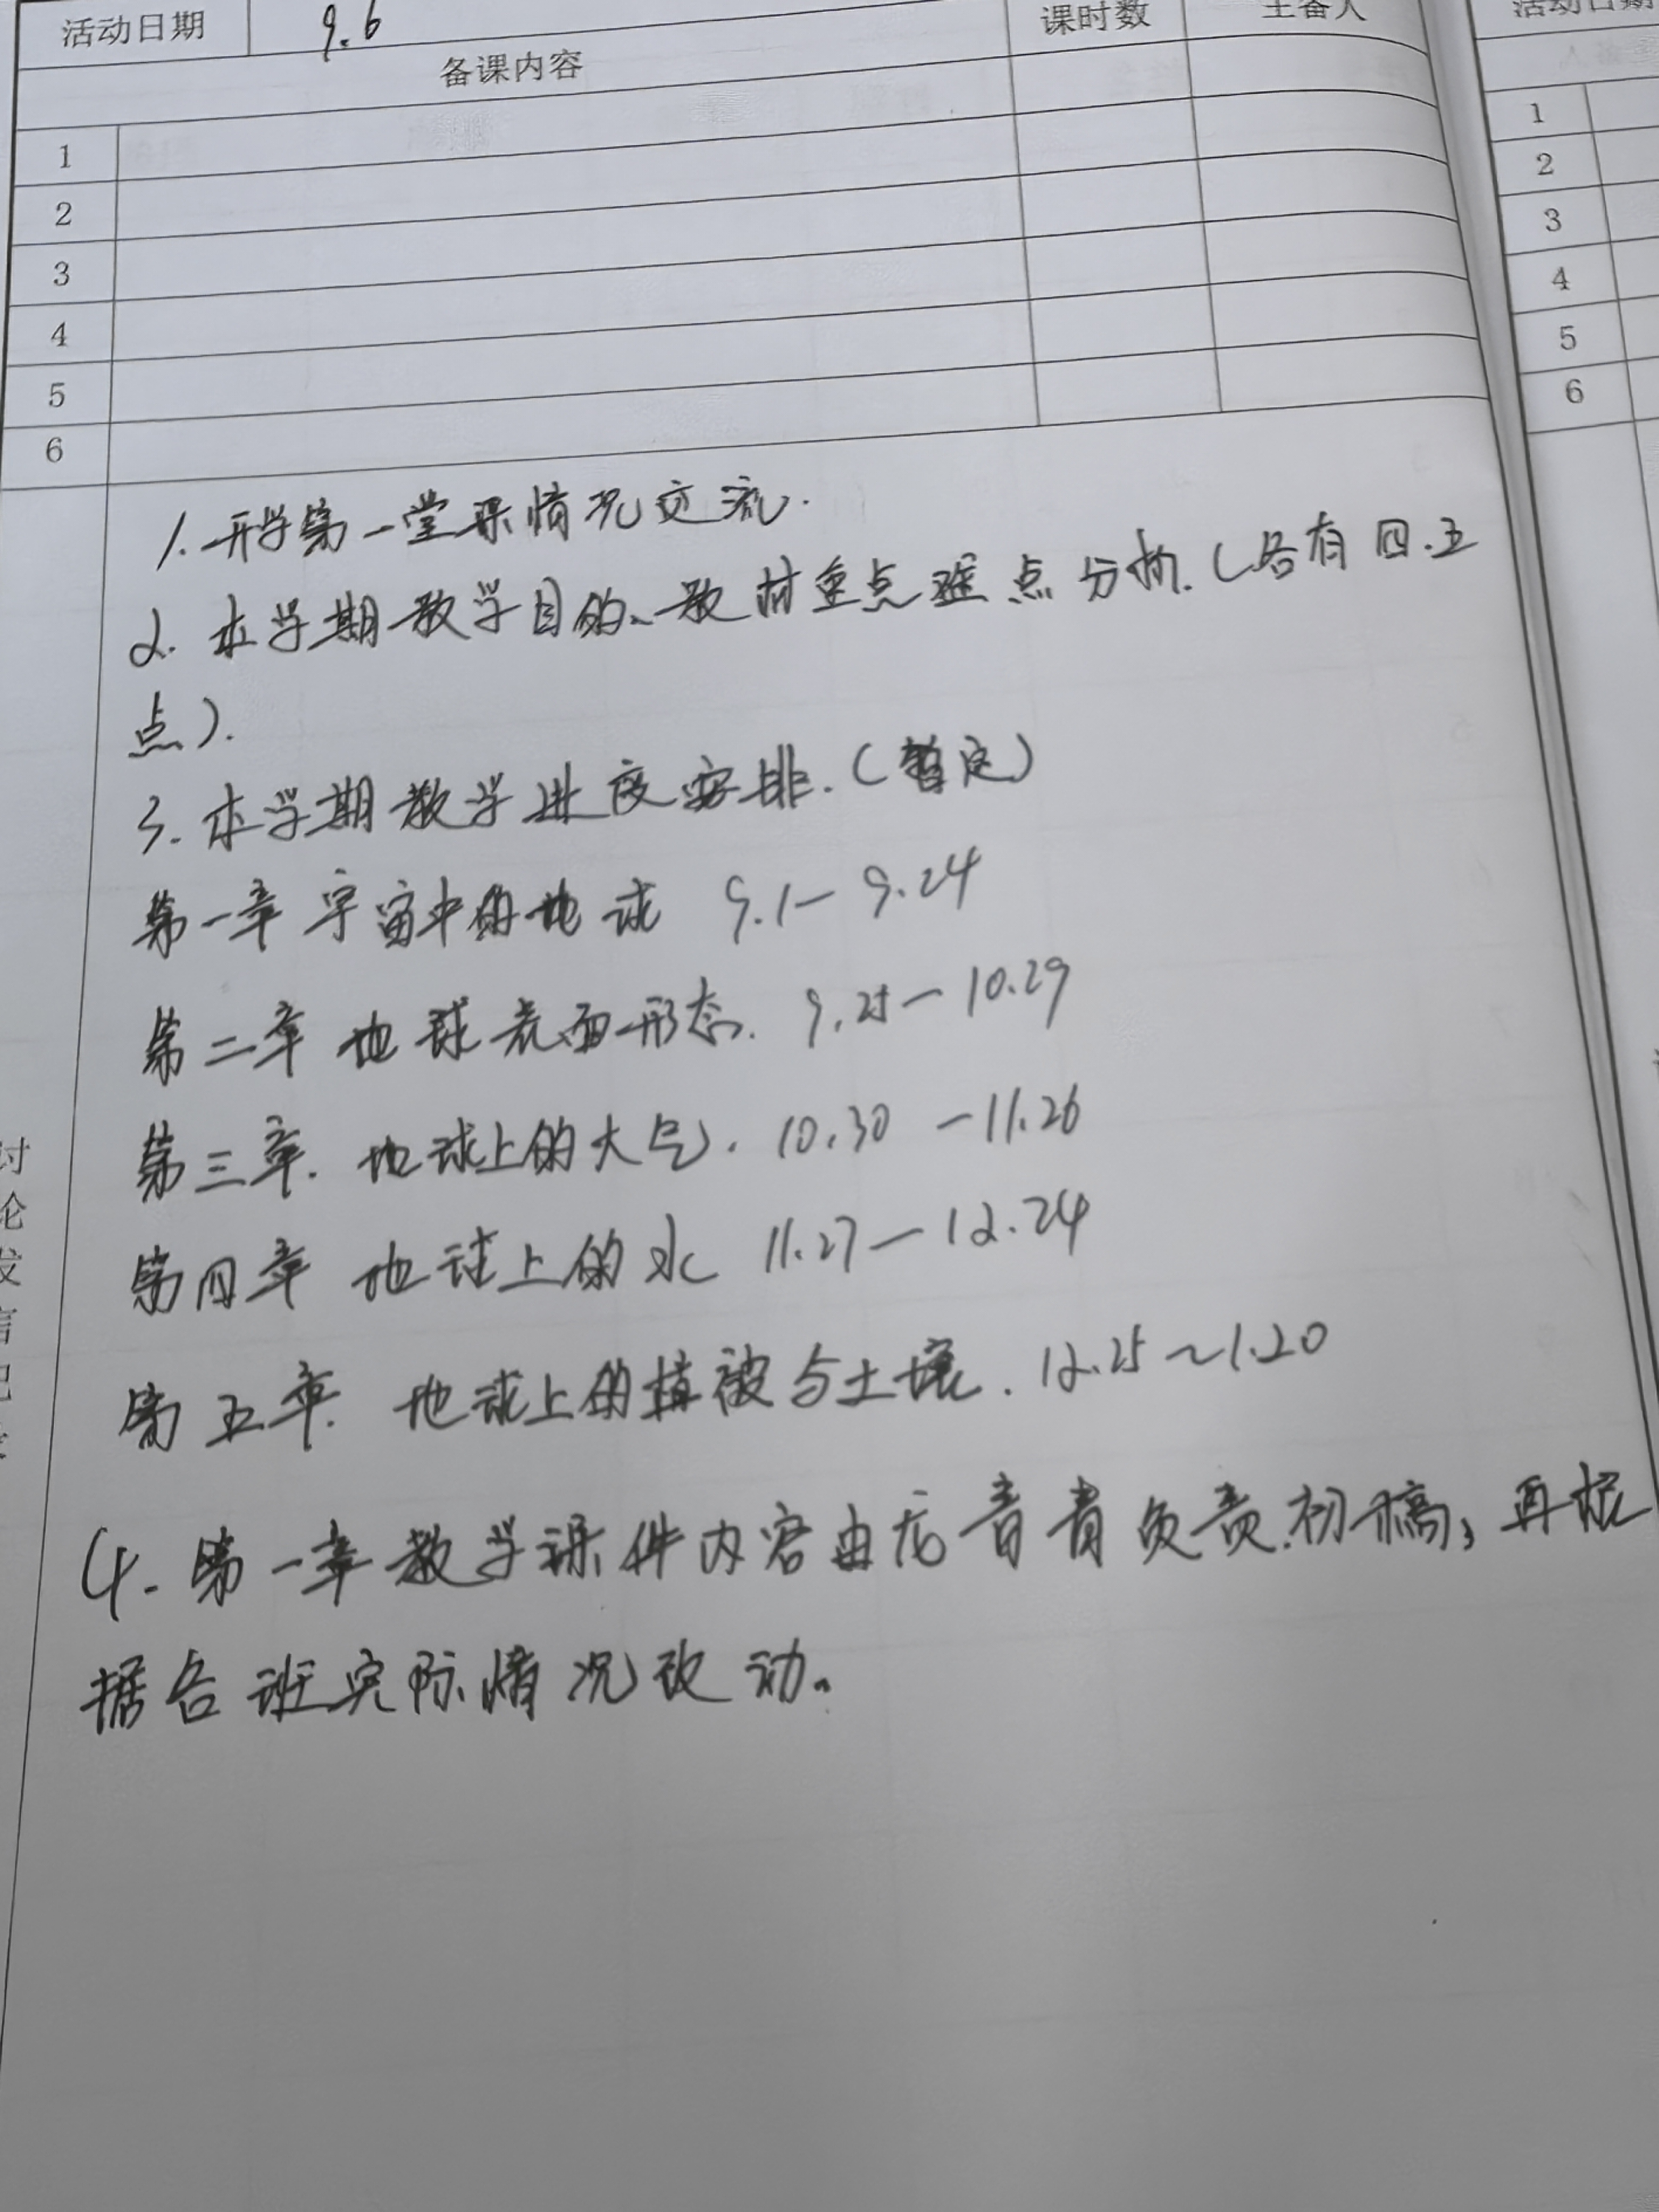 活动日期 9.6 课时数 主备人
备课内容
1
2
3
4
5
6
1.开学第一堂课情况交流.
2.本学期教学目的、教材重点难点分析.(各有四.五
点).
3.本学期教学进度安排.(暂定)
第一章 宇宙中的地球 9.1－9.24
第二章 地球表面形态. 9.25－10.29
第三章. 地球上的大气. 10.30 －11.26
第四章 地球上的水 11.27－12.24
第五章. 地球上的植被与土壤. 12.25～1.20
4.第一章教学课件内容由龙青负责初稿,再根
据各班实际情况改动。
讨论发言记录
活动日期
1
2
3
4
5
6